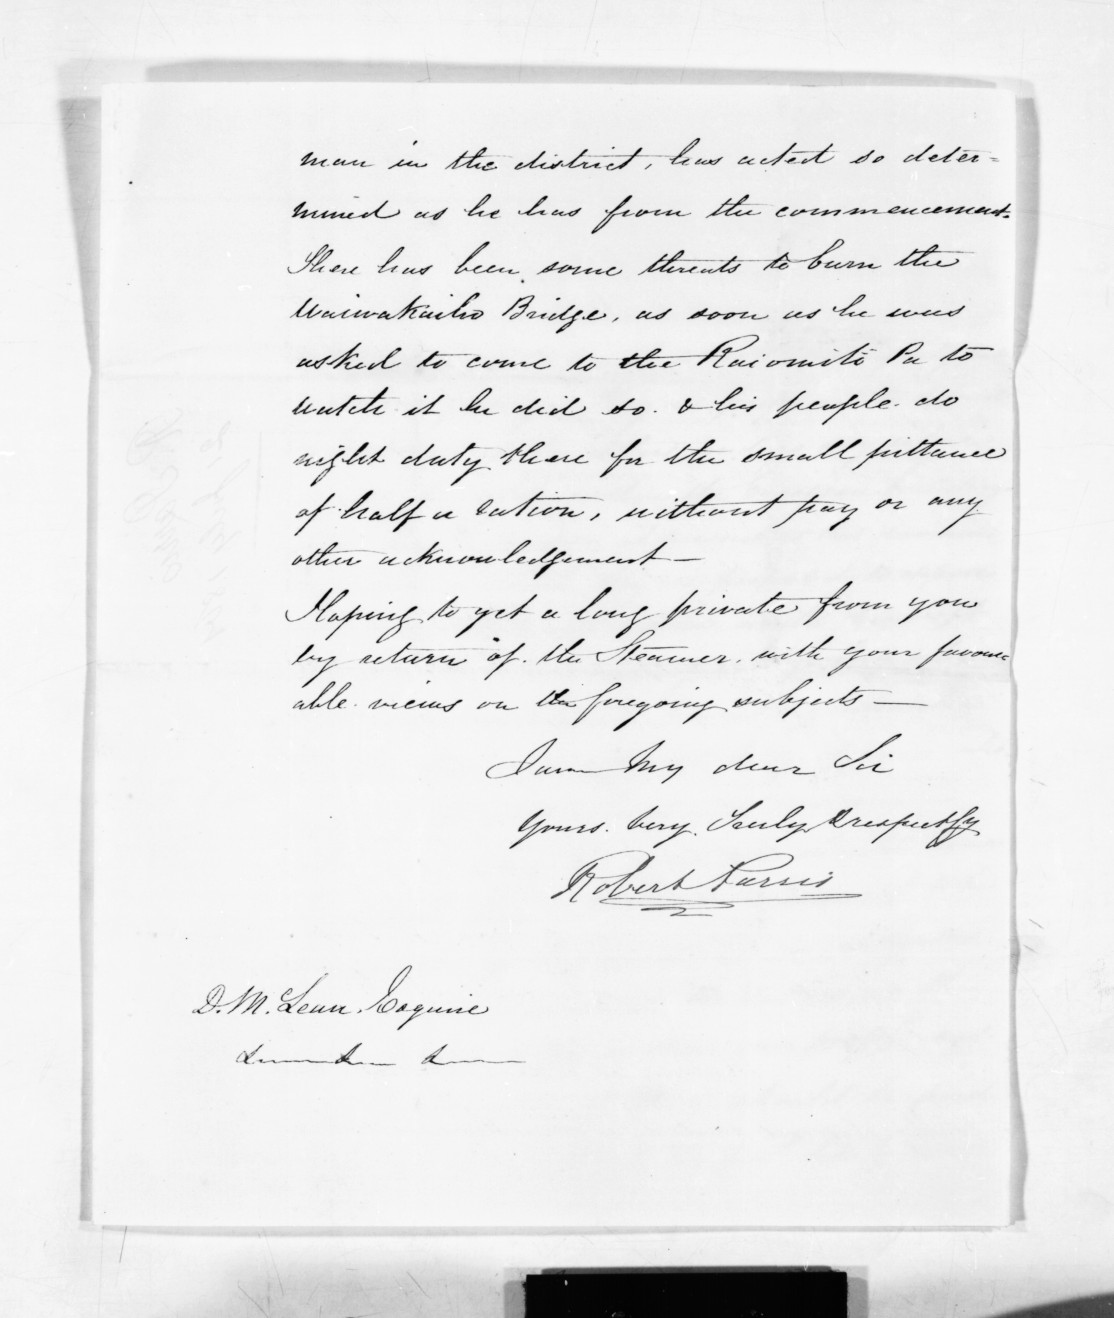 man in the district, has acted so deter=
mined as he has from the commencement.
There has been some threats to burn the
Waiwakaiho Bridge, as soon as he was
asked to come to the Raiomiti Pa to
watch it he did so. & his people do
night duty there for the small pittance
of half a ration, without pay or any
other acknowledgement —
Hoping to get a long private from you
by return of the Steamer. with your favour=
able views on the foregoing subjects —
I am My dear Sir
Yours. Very. Truly & respectfy
Robert Parris
D. M. Lean. Esquire